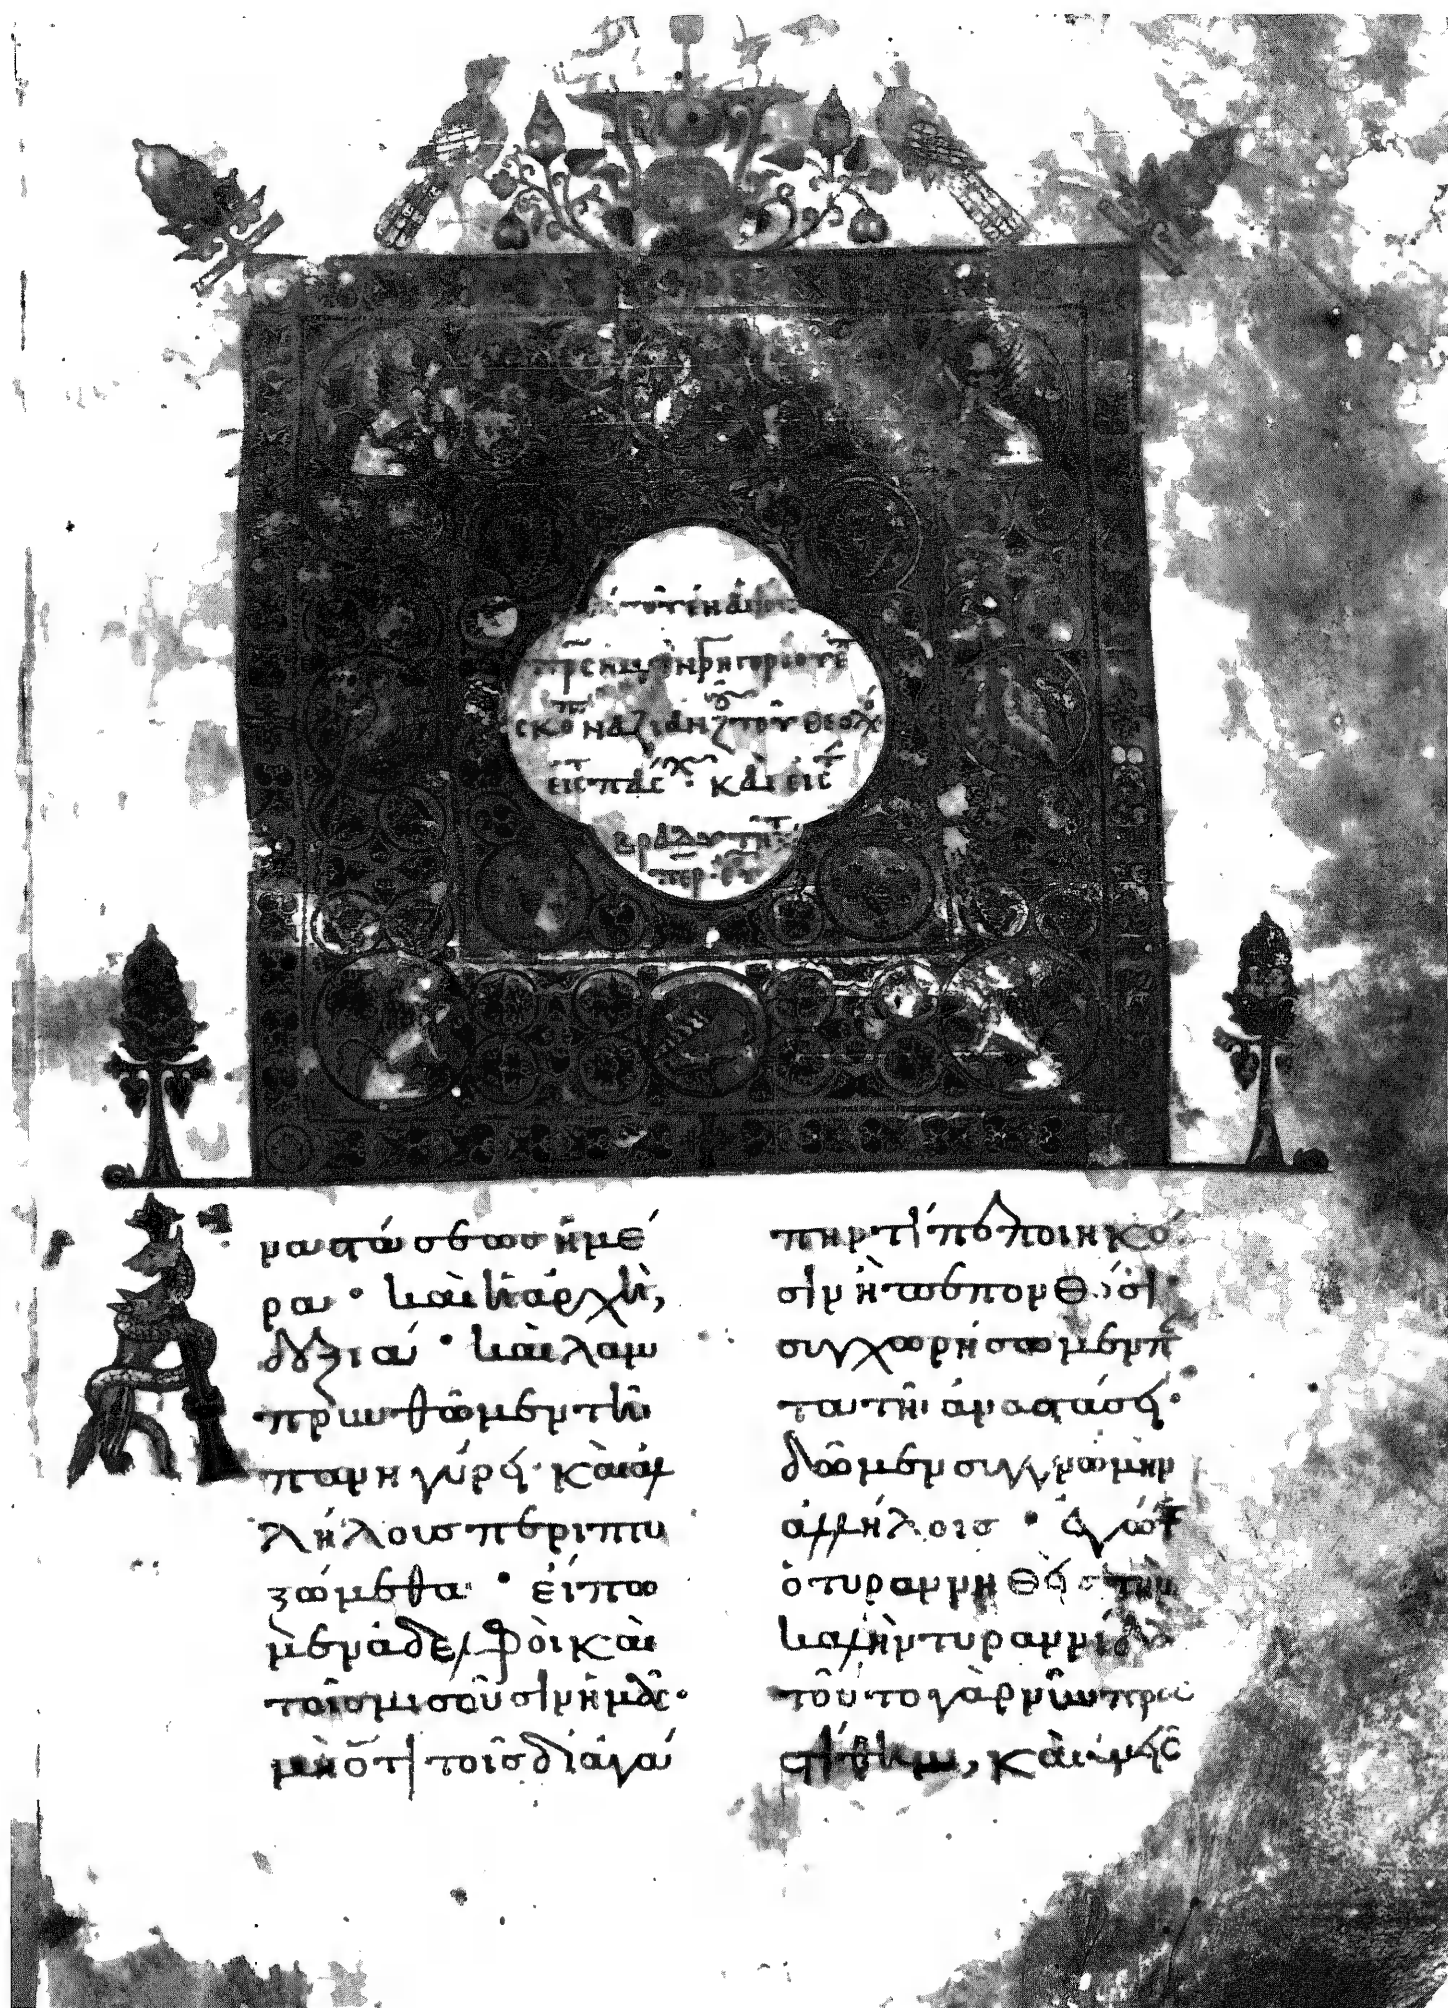 τοῦ ἐν ἁγίοις
πρς ἡμῶν Γρηγορίου ἐπ
σκο Ναζιανζ τοῦ θεολό
εἰς τ πάσχ · καὶ εἰς τ
βραδυτῆτ
Ἀναστάσεως ἡμέ
ρα · καὶ ἡ ἀρχὴ,
δεξιά · καὶ λαμ
πρυνθῶμεν τῆι
πανηγύρει · καὶ ἀλ
λήλους περιπτυ
ξώμεθα · εἴπω
μεν ἀδελφοὶ καὶ
τοῖς μισοῦσιν ἡμᾶς ·
μὴ ὅτι τοῖς δι ἀγά
πην τὶ πεποιηκό
σιν ἢ πεπονθόσι ·
συγχωρήσωμεν πά
τα τῆι ἀναστάσει ·
δῶμεν συγγνώμην
ἀλλήλοις · ἐγώ τε
ὁ τυραννηθεὶς τὴν
καλὴν τυραννίδα
τοῦτο γὰρ νῦν προσ
τίθημι, καὶ ὑμεῖς